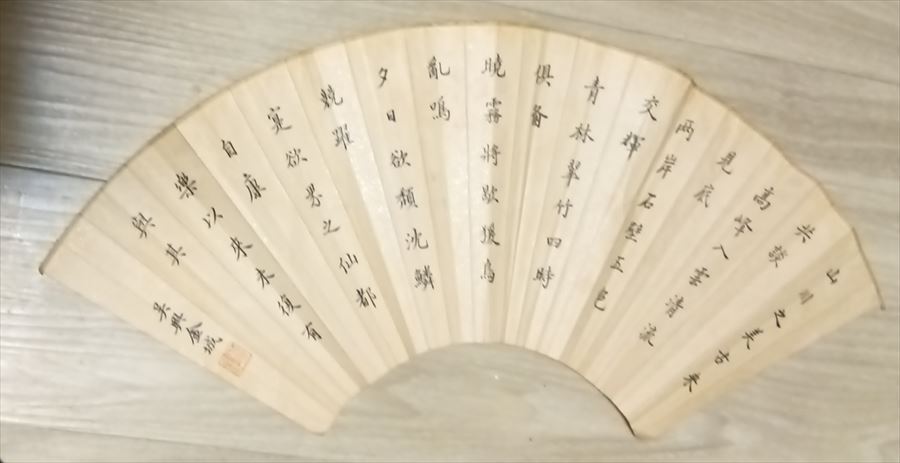 山川之美古来
共談
高峰入雲清流
見底
兩岸石壁五色
交輝
青林翠竹四時
俱備
曉霧將歇猨鳥
亂鳴
夕日欲頹沈鱗
競躍
寔欲界之仙都
自康
樂以來未復有
與其
吳興金城